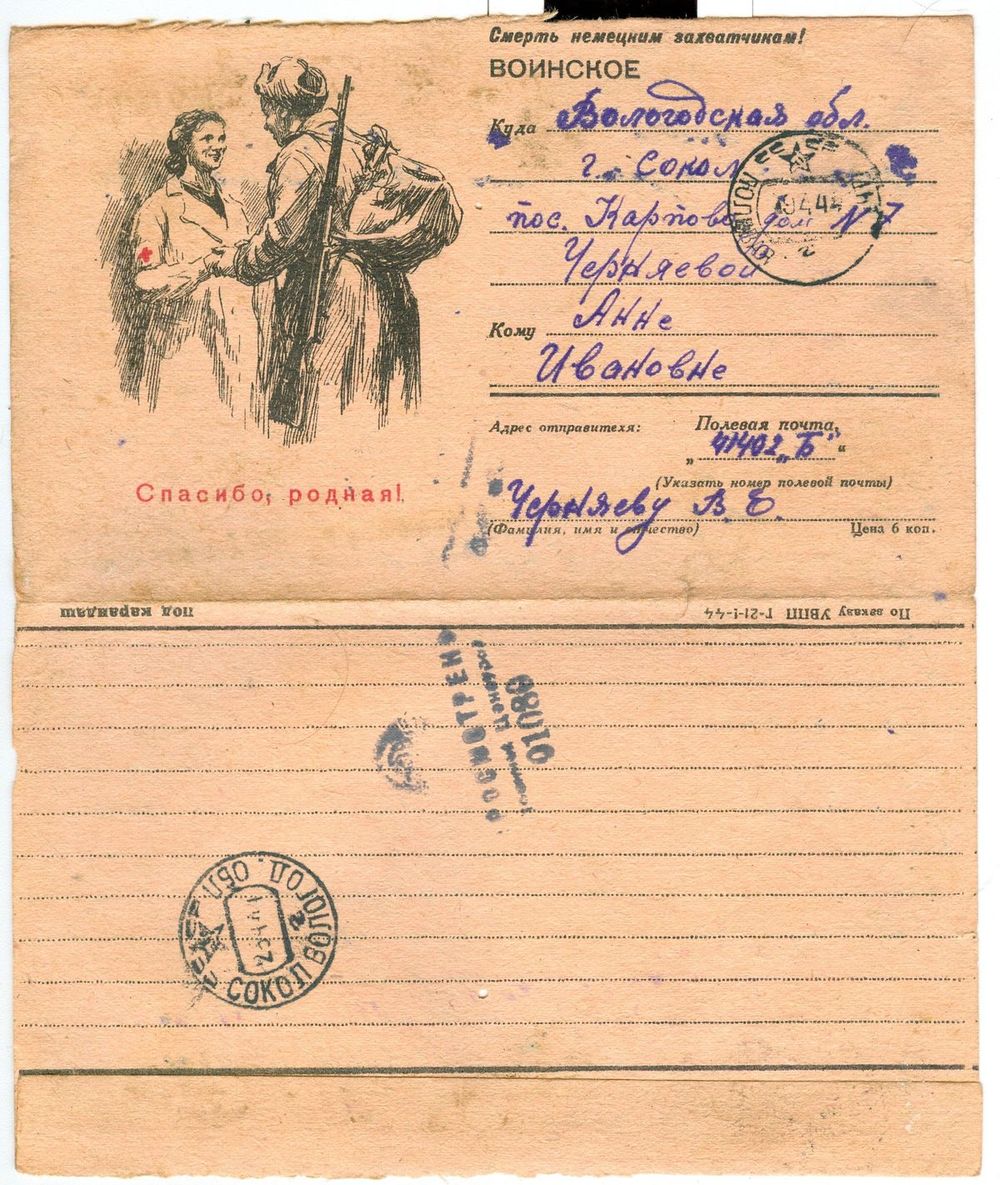 Смерть немецким захватчикам!
ВОИНСКОЕ
Куда Вологодская обл.
г. Сокол
пос. Карпово дом N 7
Черняевой
Кому Анне
Ивановне
Адрес отправителя: Полевая почта
„41402 „Б" "
(Указать номер полевой почты)
Черняеву В. Е.
(Фамилия, имя и отчество) Цена 6 коп.
Спасибо, родная!
По заказу УВПП Г-21-I-44
под карандаш
ПРОСМОТРЕНО
Военной Цензурой
01080
СОКОЛ ВОЛОГОД. ОБЛ.